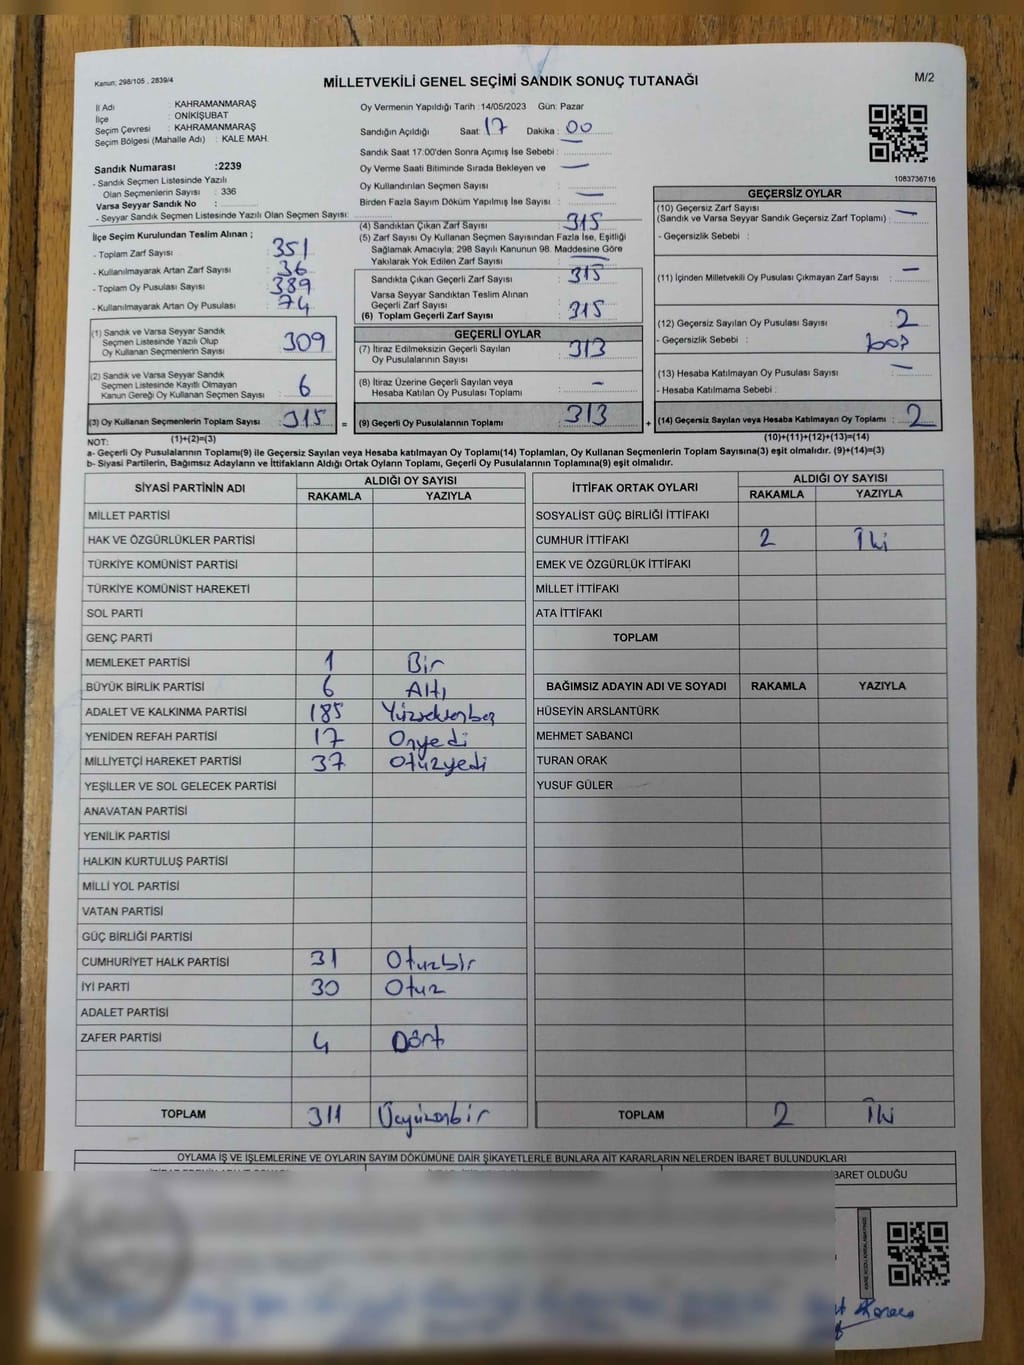 Kanun; 298/105 , 2839/4
MİLLETVEKİLİ GENEL SEÇİMİ SANDIK SONUÇ TUTANAĞI
M/2
İl Adı : KAHRAMANMARAŞ
İlçe : ONİKİŞUBAT
Seçim Çevresi : KAHRAMANMARAŞ
Seçim Bölgesi (Mahalle Adı) : KALE MAH.
Sandık Numarası :2239
- Sandık Seçmen Listesinde Yazılı
Olan Seçmenlerin Sayısı : 336
Varsa Seyyar Sandık No :
- Seyyar Sandık Seçmen Listesinde Yazılı Olan Seçmen Sayısı:
Oy Vermenin Yapıldığı Tarih :14/05/2023 Gün: Pazar
Sandığın Açıldığı Saat: 17 Dakika : 00
Sandık Saat 17:00'den Sonra Açımış İse Sebebi :
Oy Verme Saati Bitiminde Sırada Bekleyen ve : —
Oy Kullandırılan Seçmen Sayısı
Birden Fazla Sayım Döküm Yapılmış İse Sayısı : —
1083736716
İlçe Seçim Kurulundan Teslim Alınan ;
- Toplam Zarf Sayısı : 351
- Kullanılmayarak Artan Zarf Sayısı : 36
- Toplam Oy Pusulası Sayısı : 389
- Kullanılmayarak Artan Oy Pusulası : 74
(1) Sandık ve Varsa Seyyar Sandık
Seçmen Listesinde Yazılı Olup
Oy Kullanan Seçmenlerin Sayısı : 309
(2) Sandık ve Varsa Seyyar Sandık
Seçmen Listesinde Kayıtlı Olmayan
Kanun Gereği Oy Kullanan Seçmen Sayısı : 6
(3) Oy Kullanan Seçmenlerin Toplam Sayısı : 315 =
(1)+(2)=(3)
(4) Sandıktan Çıkan Zarf Sayısı : 315
(5) Zarf Sayısı Oy Kullanan Seçmen Sayısından Fazla İse, Eşitliği
Sağlamak Amacıyla; 298 Sayılı Kanunun 98. Maddesine Göre
Yakılarak Yok Edilen Zarf Sayısı : —
Sandıkta Çıkan Geçerli Zarf Sayısı : 315
Varsa Seyyar Sandıktan Teslim Alınan
Geçerli Zarf Sayısı :
(6) Toplam Geçerli Zarf Sayısı : 315
GEÇERLİ OYLAR
(7) İtiraz Edilmeksizin Geçerli Sayılan
Oy Pusulalarının Sayısı : 313
(8) İtiraz Üzerine Geçerli Sayılan veya
Hesaba Katılan Oy Pusulası Toplamı : —
(9) Geçerli Oy Pusulalarının Toplamı : 313 +
GEÇERSİZ OYLAR
(10) Geçersiz Zarf Sayısı : —
(Sandık ve Varsa Seyyar Sandık Geçersiz Zarf Toplamı)
- Geçersizlik Sebebi :
(11) İçinden Milletvekili Oy Pusulası Çıkmayan Zarf Sayısı : —
(12) Geçersiz Sayılan Oy Pusulası Sayısı : 2
- Geçersizlik Sebebi : boş
(13) Hesaba Katılmayan Oy Pusulası Sayısı : —
- Hesaba Katılmama Sebebi :
(14) Geçersiz Sayılan veya Hesaba Katılmayan Oy Toplamı : 2
(10)+(11)+(12)+(13)=(14)
NOT:
a- Geçerli Oy Pusulalarının Toplamı(9) ile Geçersiz Sayılan veya Hesaba katılmayan Oy Toplamı(14) Toplamları, Oy Kullanan Seçmenlerin Toplam Sayısına(3) eşit olmalıdır. (9)+(14)=(3)
b- Siyasi Partilerin, Bağımsız Adayların ve İttifakların Aldığı Ortak Oyların Toplamı, Geçerli Oy Pusulalarının Toplamına(9) eşit olmalıdır.
SİYASİ PARTİNİN ADI ALDIĞI OY SAYISI
RAKAMLA YAZIYLA
MİLLET PARTİSİ
HAK VE ÖZGÜRLÜKLER PARTİSİ
TÜRKİYE KOMÜNİST PARTİSİ
TÜRKİYE KOMÜNİST HAREKETİ
SOL PARTİ
GENÇ PARTİ
MEMLEKET PARTİSİ 1 Bir
BÜYÜK BİRLİK PARTİSİ 6 Altı
ADALET VE KALKINMA PARTİSİ 185 Yüzseksenbeş
YENİDEN REFAH PARTİSİ 17 Onyedi
MİLLİYETÇİ HAREKET PARTİSİ 37 Otuzyedi
YEŞİLLER VE SOL GELECEK PARTİSİ
ANAVATAN PARTİSİ
YENİLİK PARTİSİ
HALKIN KURTULUŞ PARTİSİ
MİLLİ YOL PARTİSİ
VATAN PARTİSİ
GÜÇ BİRLİĞİ PARTİSİ
CUMHURİYET HALK PARTİSİ 31 Otuzbir
İYİ PARTİ 30 Otuz
ADALET PARTİSİ
ZAFER PARTİSİ 4 Dört
TOPLAM 311 Üçyüzonbir
İTTİFAK ORTAK OYLARI ALDIĞI OY SAYISI
RAKAMLA YAZIYLA
SOSYALİST GÜÇ BİRLİĞİ İTTİFAKI
CUMHUR İTTİFAKI 2 İki
EMEK VE ÖZGÜRLÜK İTTİFAKI
MİLLET İTTİFAKI
ATA İTTİFAKI
TOPLAM
BAĞIMSIZ ADAYIN ADI VE SOYADI RAKAMLA YAZIYLA
HÜSEYİN ARSLANTÜRK
MEHMET SABANCI
TURAN ORAK
YUSUF GÜLER
TOPLAM 2 İki
OYLAMA İŞ VE İŞLEMLERİNE VE OYLARIN SAYIM DÖKÜMÜNE DAİR ŞİKAYETLERLE BUNLARA AİT KARARLARIN NELERDEN İBARET BULUNDUKLARI
BARET OLDUĞU